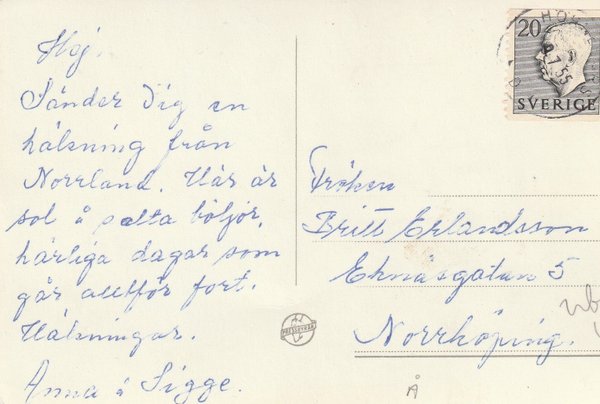 Hej.
Sänder Dig en
hälsning från
Norrland. Här är
sol å salta böljor,
härliga dagar som
går alltför fort.
Hälsningar.
Anna å Sigge.
20
SVERIGE
7.55
Fröken
Britt Erlandsson
Eknäsgatan 5
Norrköping.
Å